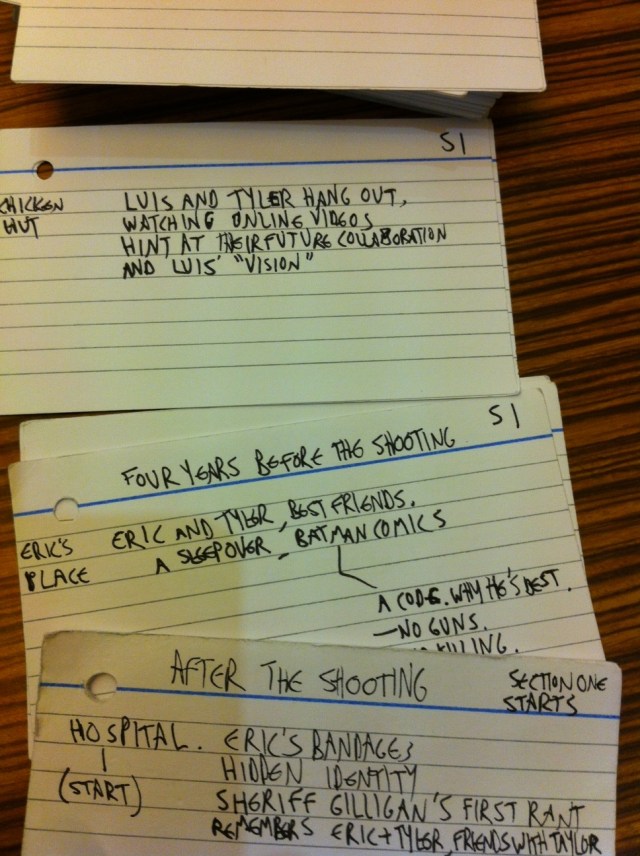 S1
CHICKEN LUIS AND TYLER HANG OUT,
HUT WATCHING ONLINE VIDEOS
HINT AT THEIR FUTURE COLLABORATION
AND LUIS' "VISION"
S1
FOUR YEARS BEFORE THE SHOOTING
ERIC'S ERIC AND TYLER, BEST FRIENDS.
PLACE A SLEEPOVER - BATMAN COMICS
A CODE. WHY HE'S BEST.
- NO GUNS.
KILLING.
AFTER THE SHOOTING SECTION ONE
STARTS
HOSPITAL. ERIC'S BANDAGES
(START) HIDDEN IDENTITY
SHERIFF GILLIGAN'S FIRST RANT
REMEMBERS ERIC + TYLER, FRIENDS WITH TAYLOR